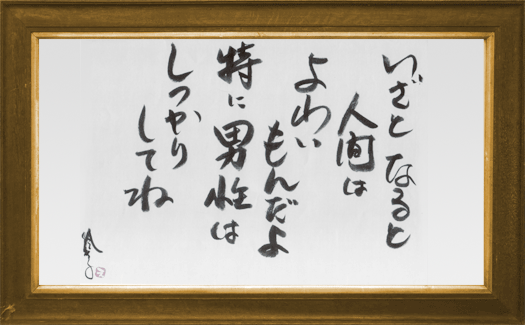 いざとなると
人間は
よわい
もんだよ
特に男性は
しっかり
してね